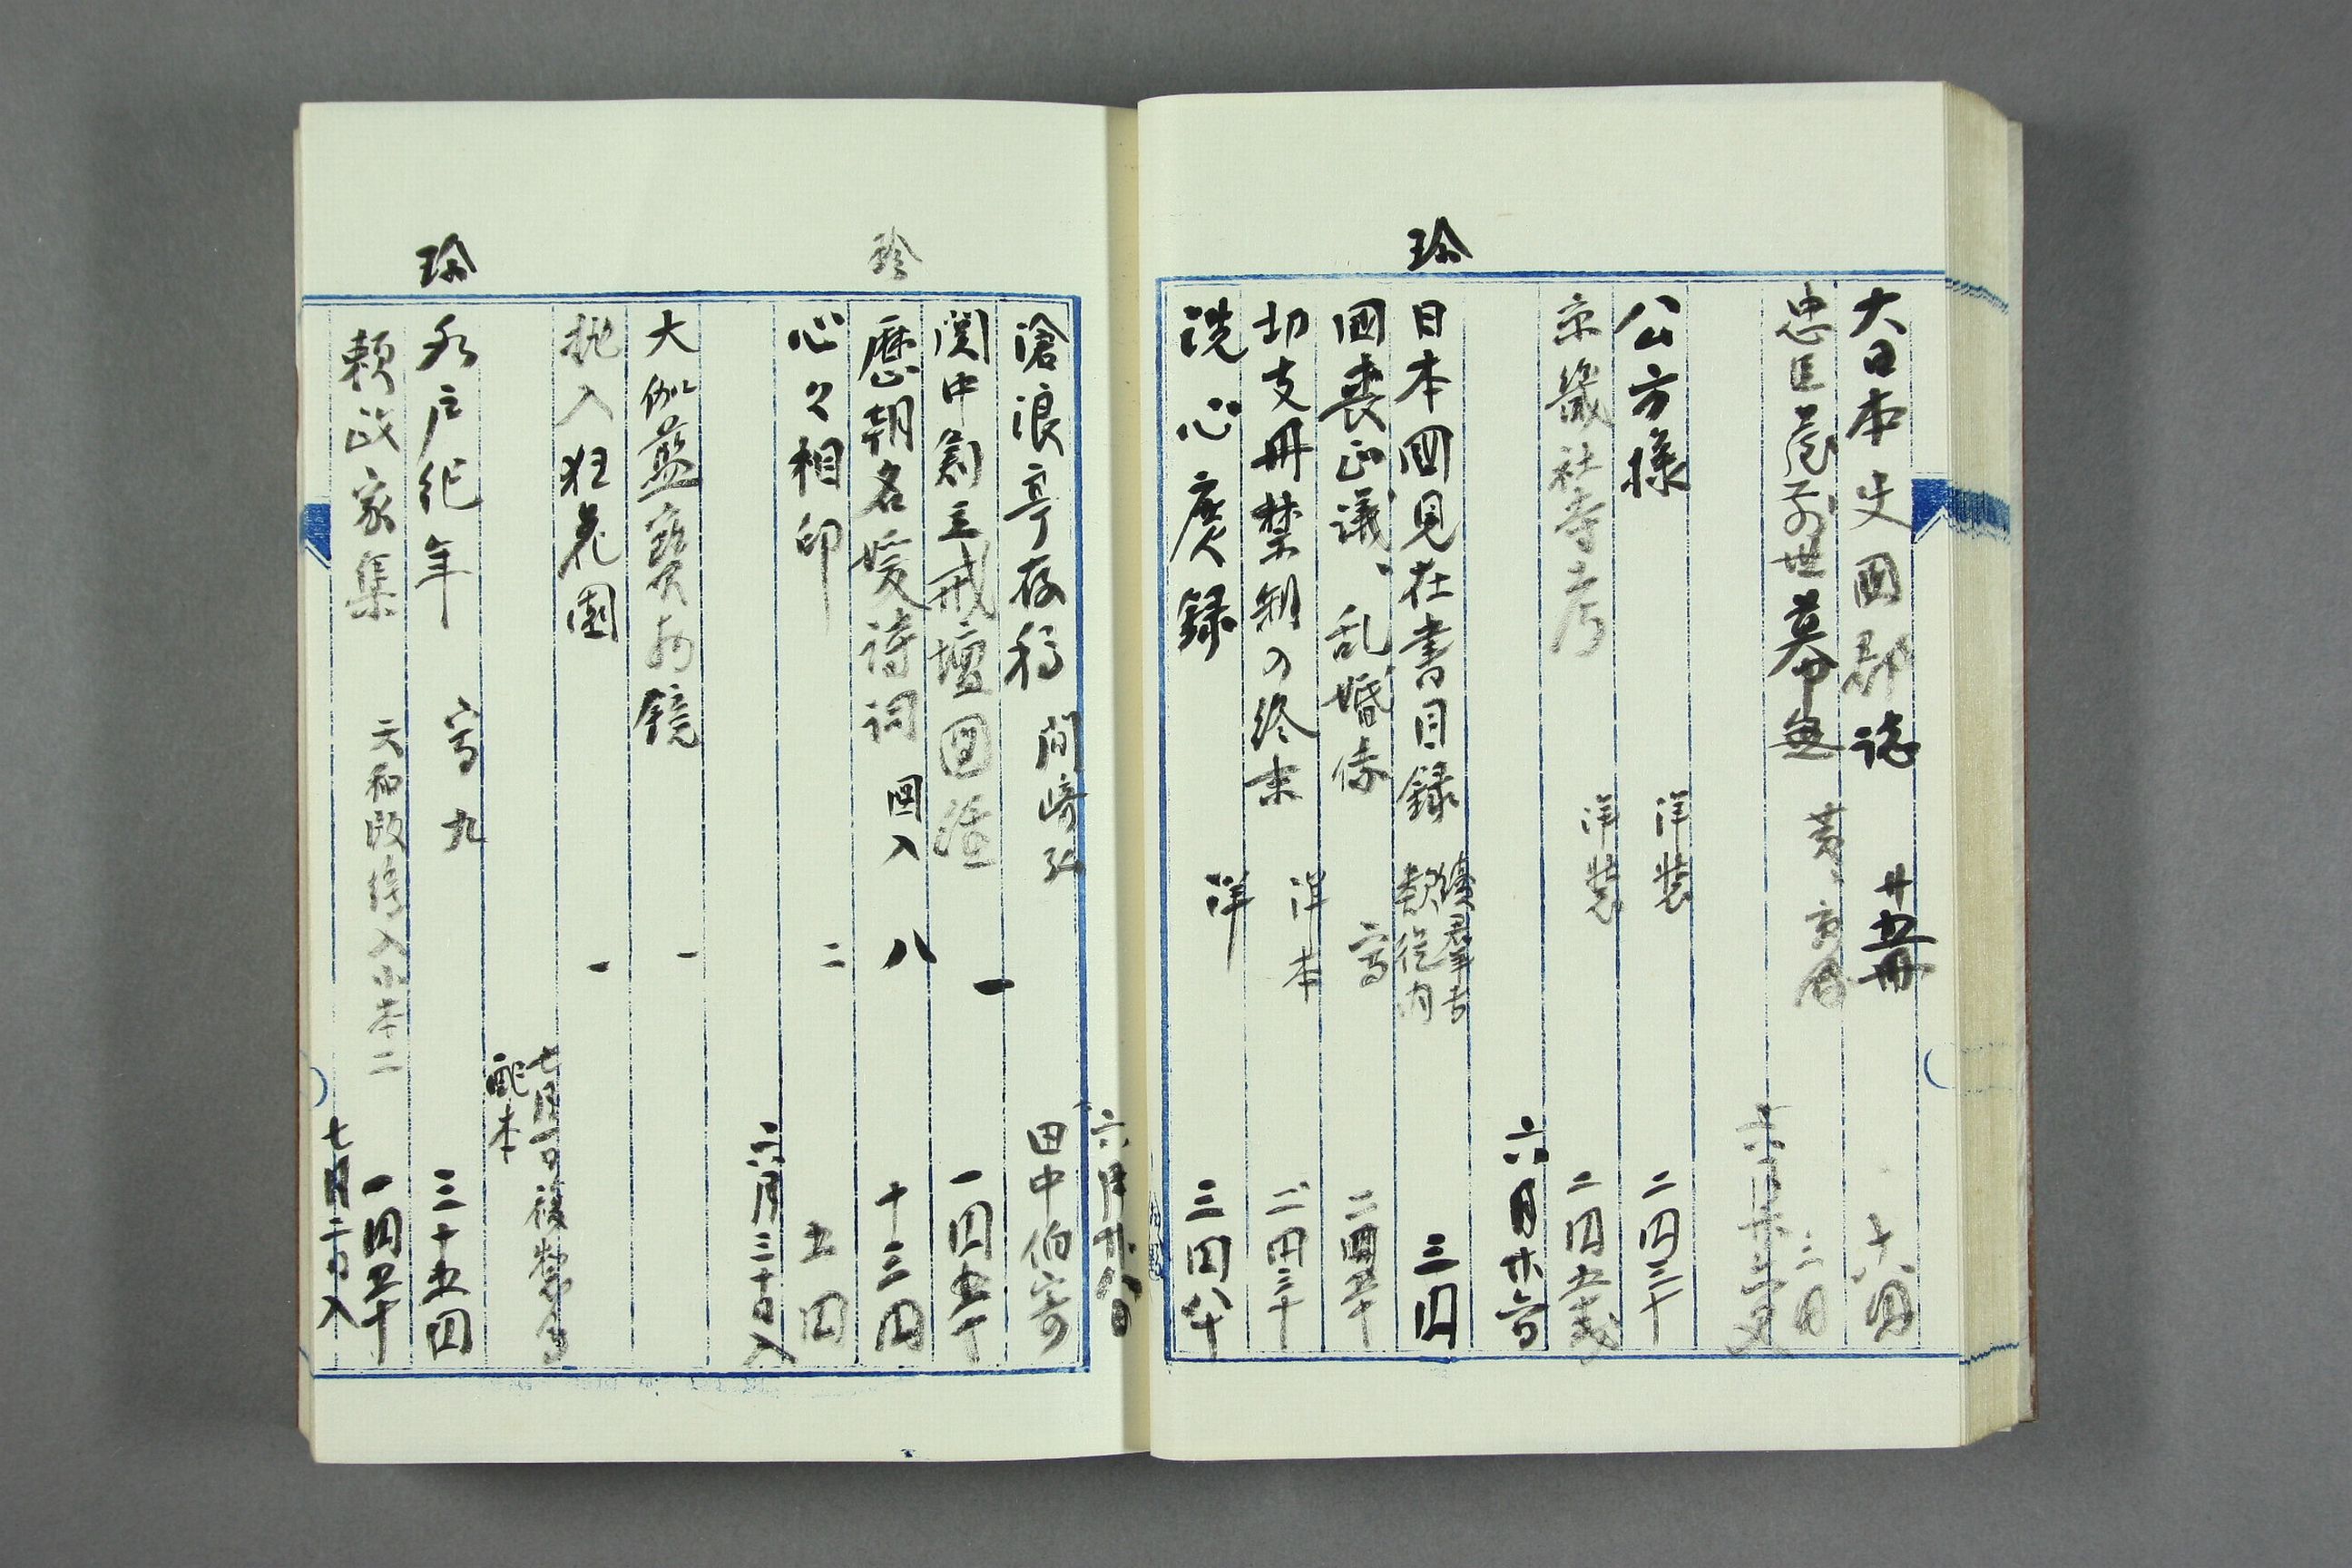 大日本史国郡誌 廿五冊 十六円
忠臣 墓 三円
公方様 洋装 二円三十
京畿社寺考 洋装 二円五十銭
六月廿六日
珍
日本国見在書目録 続群書類従内 三円
国喪正議、乱婚伝 写 二円五十
切支丹禁制の終末 洋本 二円三十
洗心廣録 洋 三円八十
六月廿八日
滄浪亭存稿 岡崎 一 田中伯寄
関中創立戒壇図経 一円五十
珍
歴朝名媛詩詞 図入 八 十三円
心々相印 二 五円
六月三十日入
大伽藍宝物鏡 一
挑入狂花園 一
七月一日 複製会
配本
珍
水戸紀年 写九 三十五円
頼政家集 元和 入 本二 一円五十
七月二日入